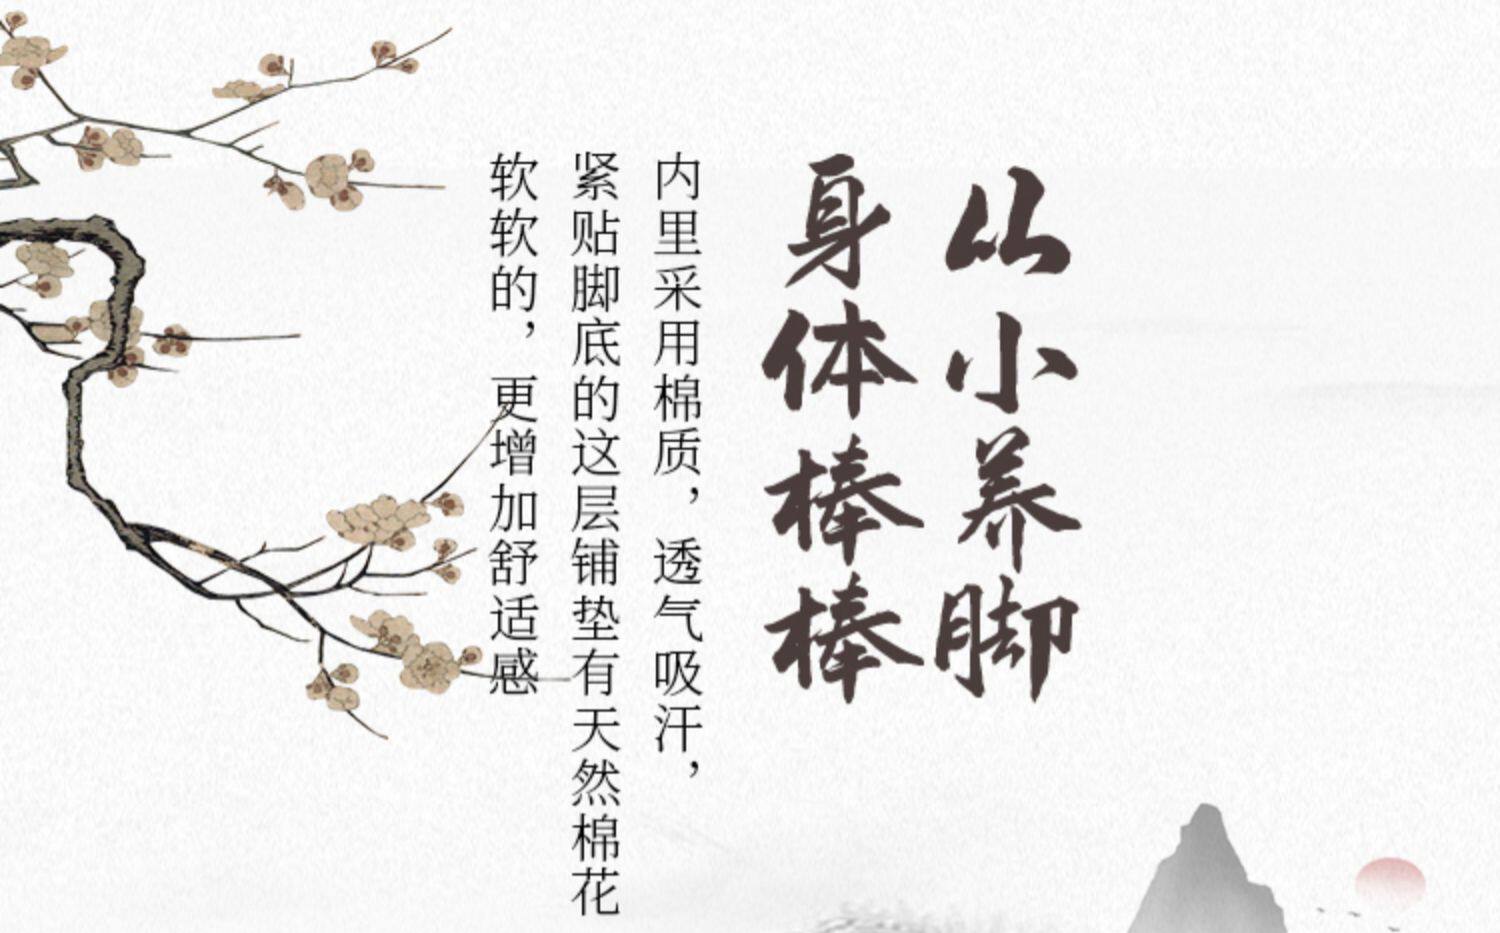 从小养脚
身体棒棒
内里采用棉质，透气吸汗，
紧贴脚底的这层铺垫有天然棉花
软软的，更增加舒适感